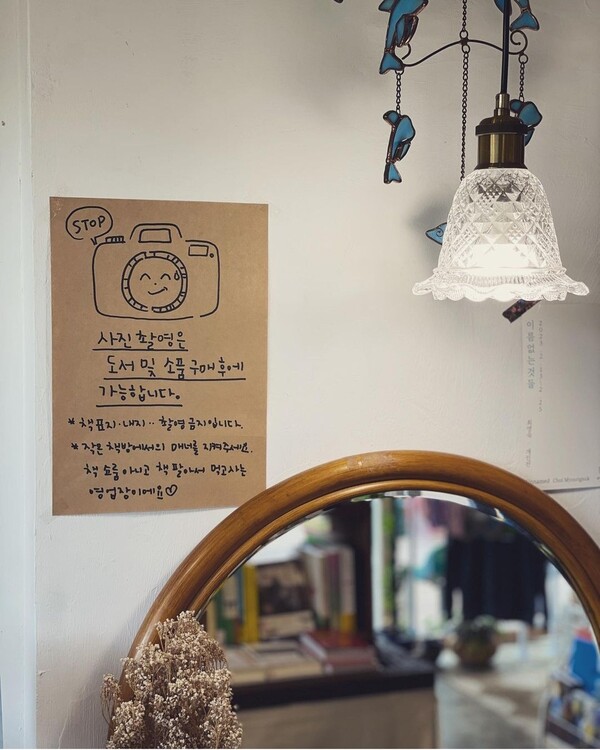 STOP
사진 촬영은
도서 및 소품 구매 후에
가능합니다.
* 책표지·내지·· 촬영 금지입니다.
* 작은 책방에서의 매너를 지켜주세요.
책 쇼룸 아니고 책 팔아서 먹고사는
영업장이에요♡
이름없는것들